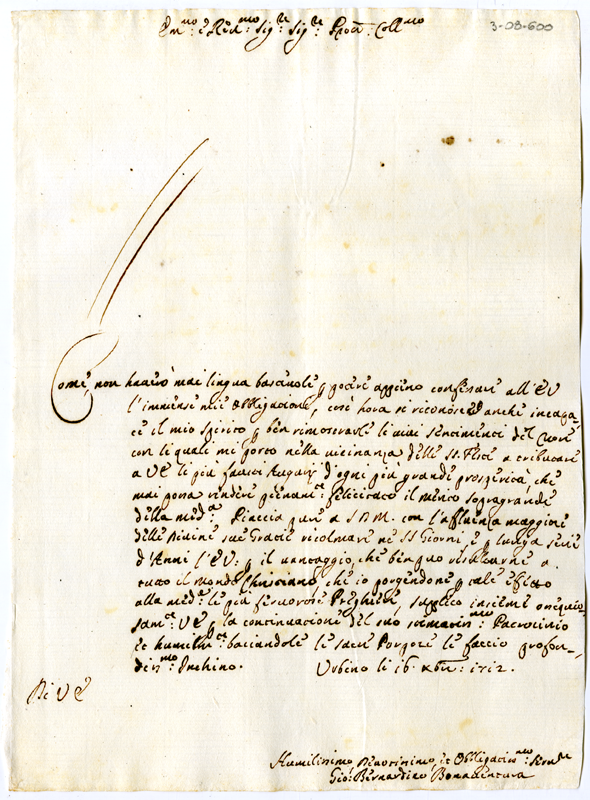 3-08-600
Em.mo e Red.mo Sig.re Sig.re Proñ: Coll.mo
Come, non haverò mai lingua bastevole p poter appieno confessare all'EV
l'immense mie Obbligazioni, così hora si riconosce anche incapa-
ce il mio spirito p ben rimostrarle li vivi sentimenti del Cuore
con li quali mi porto nella vicinanza delle SS. Feste a tributare
a VE li più fausti Augurj d'ogni più grande prosperità, che
mai possa rendere pienam.te felicitato il merito sopragrande
della med.a Piaccia pure a S.D.M. con l'affluenza maggiore
delle Divine sue Grazie ricolmare ne SS Giorni e p lunga serie
d'Anni l'EV: p il vantaggio, che ben può risultarne a
tutto il Mondo Christiano, che io porgendone p tale effetto
alla med.a le più fervorose Preghiere, supplico insieme ossequio-
sam.te VE p la continuazione del suo stimatiss.mo: Patrocinio
et humilm.te baciandole le sacre Porpore le faccio profon-
diss.mo Inchino. Urbino li 16. Xbre: 1712.
Di VE
Humilissimo Devotissimo, et Obbligatiss.mo: Ser.re
Gio: Bernardino Bonaventura